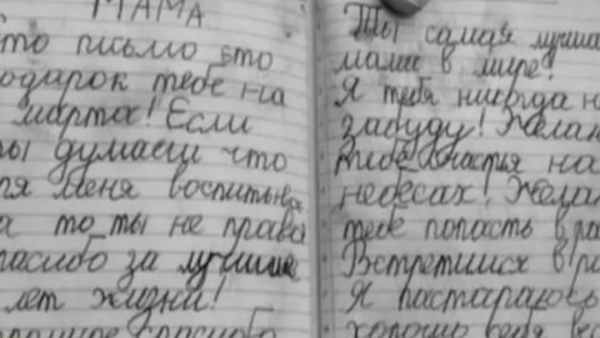 МАМА
то письмо это
одарок тебе на
марта! Если
ты думаеш что
ля меня воспитыва
а то ты не права
пасибо за лучшие
лет жизни!
спасибо
Ты самая лучша
мама в мире!
Я тебя никогда н
забуду! Желаю
тебе счастья на
небесах! Желаю
тебе попасть в ра
Встретимся в ра
Я пастараюсь
хорошо себя вес